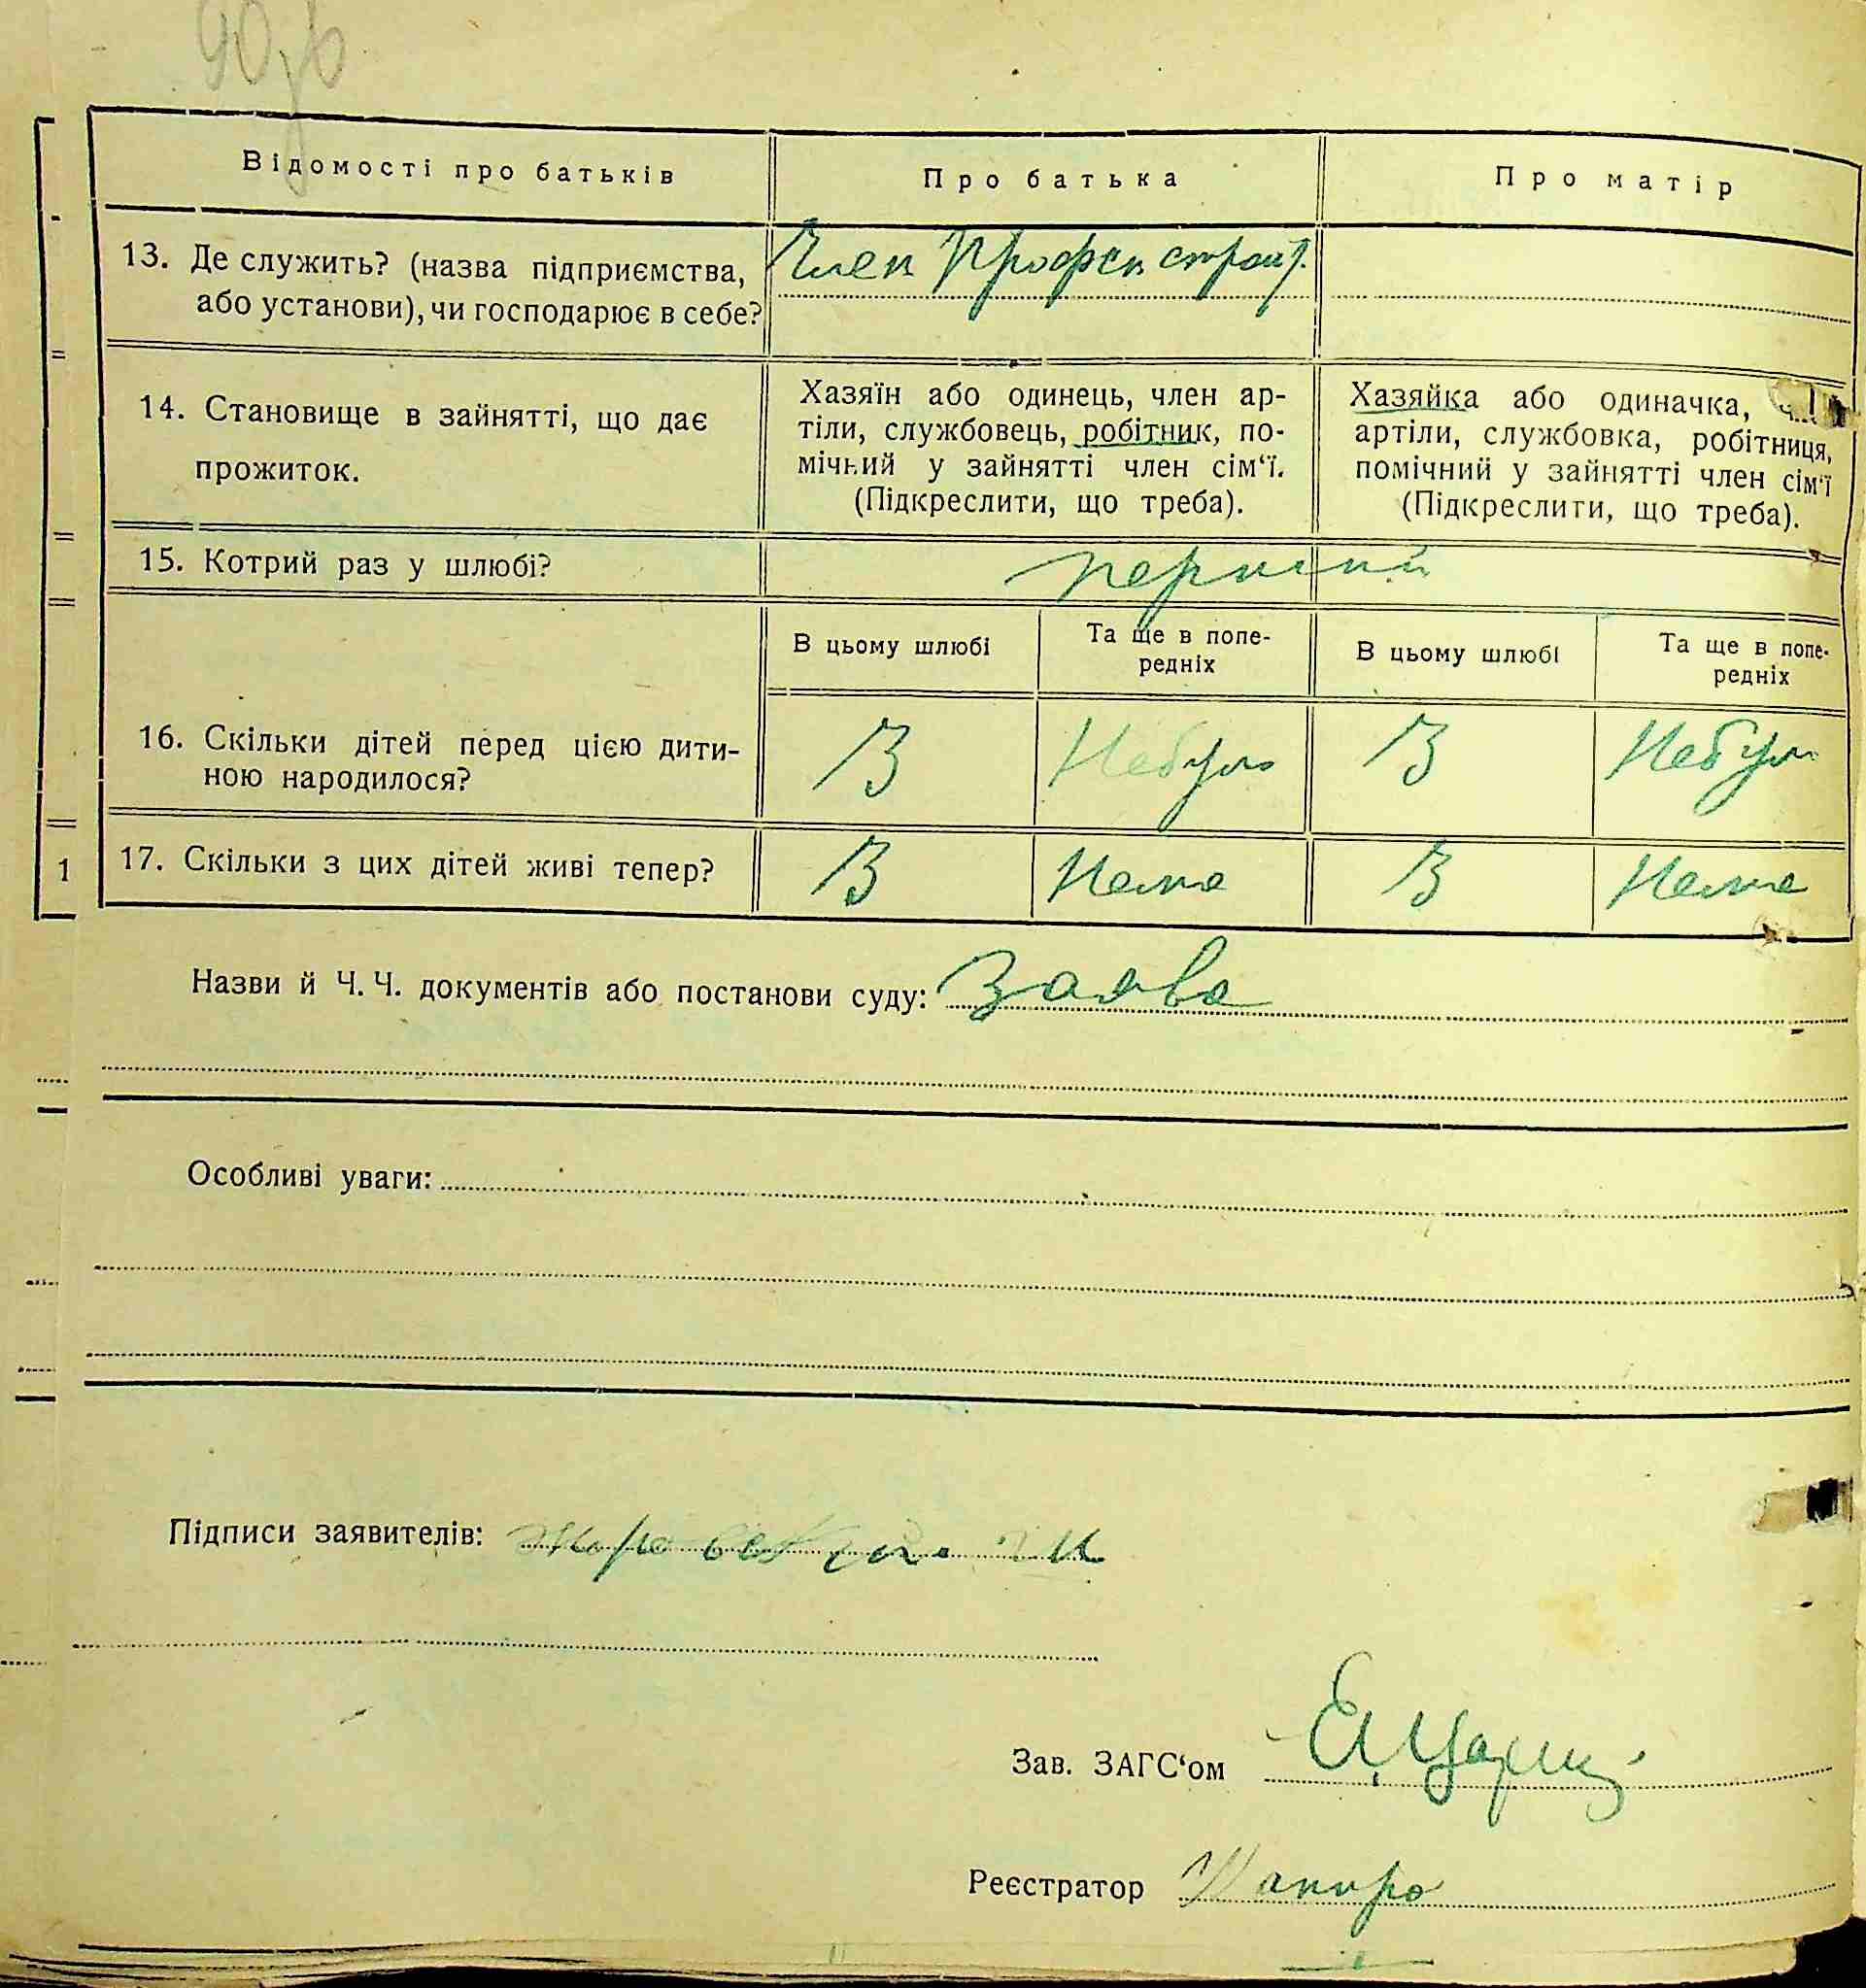 Відомості про батьків
Про батька
Про матір
13. Де служить? (назва підприємства,
або установи), чи господарює в себе?
Член Профсп строит.
14. Становище в зайнятті, що дає
прожиток.
Хазяїн або одинець, член ар-
тіли, службовець, робітник, по-
мічний у зайнятті член сім‘ї.
(Підкреслити, що треба).
Хазяйка або одиначка,
артіли, службовка, робітниця,
помічний у зайнятті член сім‘ї
(Підкреслити, що треба).
15. Котрий раз у шлюбі?
перший
В цьому шлюбі
Та ще в попе-
редніх
В цьому шлюбі
Та ще в попе-
редніх
16. Скільки дітей перед цією дити-
ною народилося?
3
Небуло
3
Небуло
1
17. Скільки з цих дітей живі тепер?
3
Нема
3
Нема
Назви й Ч. Ч. документів або постанови суду: Заява
Особливі уваги:
Підписи заявителів:
Зав. ЗАГС‘ом
Реєстратор